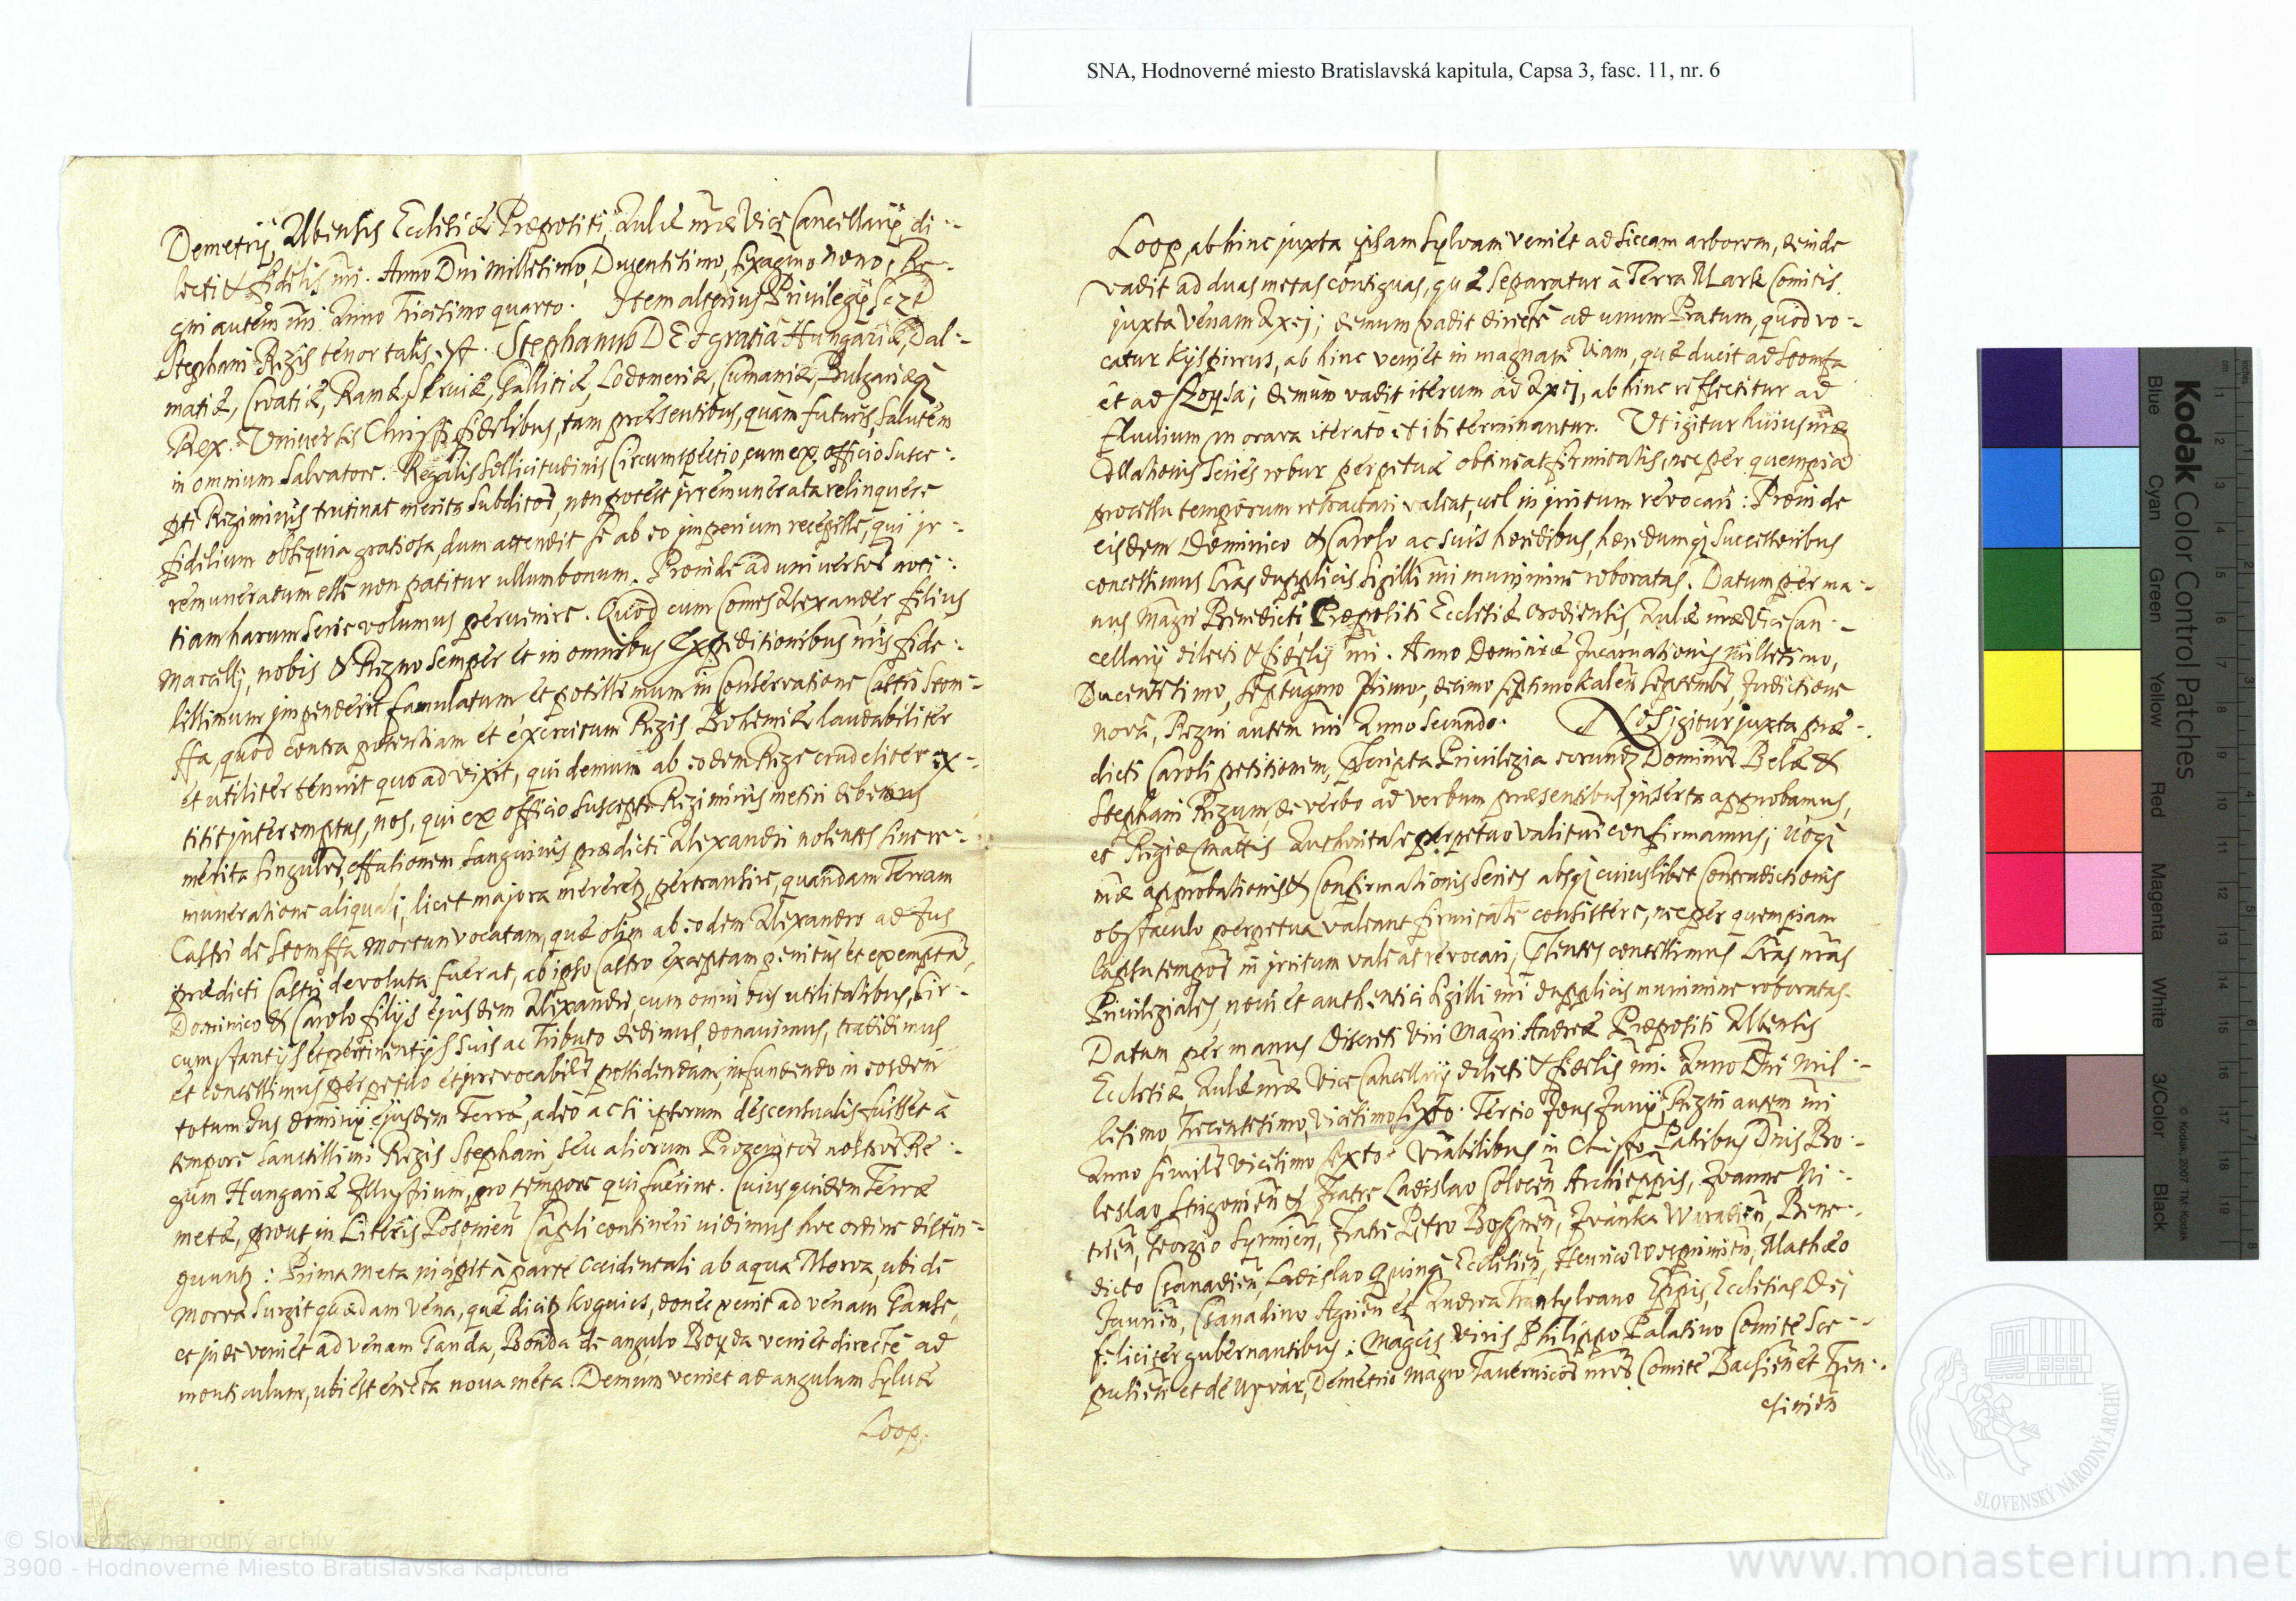 SNA, Hodnoverné miesto Bratislavská kapitula, Capsa 3, fasc. 11, nr. 6
Demetrij, Albensis Ecclesiæ Præpositi, Aulæ nræ Vice Cancellarij di-
lecti & fidelis nri. Anno Dni Millesimo, Ducentisimo, sexagmo Nono, Re-
gni autem nri Anno Tricesimo quarto. Item alterius Privilegij
Stephani Regis tenor talis est. Stephanus DEI gratia Hungariæ, Dal-
matiæ, Croatiæ, Ramæ, Serviæ, Galliciæ, Lodomeriæ, Cumaniæ, Bulgariæq
Rex. Universis Christi fidelibus, tam præsentibus, quam futuris, salutem
in omnium Salvatore. Regalis Sollicitudinis Circumspectio, cum ex officio susce-
pti Regiminis trutinat merita Subditor, non potest irremunerata relinquere
fidelium obsequia gratiosa, dum attendit se ab eo imperium recepisse, qui ir-
remuneratum esse non patitur ullum bonum. Proinde ad universor noti-
tiam harum serie volumus pervenire. Quod cum Comes Alexander, filius
Marcelli, nobis & Regno semper et in omnibus Expeditionibus nris fide-
lissimum impenderit famulatum et potissimum in Conservatione Castri Stom-
ffa, quod contra potentiam et exercitum Regis Bohemiæ laudabiliter
et utiliter tenuit quoad vixit, qui demum ab eodem Rege crudeliter ex-
titit interemptus, nos, qui ex officio suscepti Regiminis metiri debemus
merita singulor, effusionem sanguinis prædicti Alexandri nolentes sine re-
muneratione aliquali, licet majora mereretr, pertransire, quandam Terram
Castri de Stomffa Mortun vocatam, quæ olim ab eodem Alexandro ad Jus
prædicti Castri devoluta fuerat, ab ipso Castro exceptam penitus et exemptam,
Dominico & Carolo filijs ejusdem Alexandri, cum omnibus utilitatibus, cir-
cumstantijs et pertinentijs suis ac Tributo dedimus, donavimus, tradidimus
et concessimus perpetuo et irrevocabilr possidendam, infundendo in eosdem
totum Jus dominij ejusdem Terræ, adeo ac si ipsorum descensualis fuisset à
tempore sanctissimi Regis Stephani, seu aliorum Progenitor nostror Re-
gum Hungariæ Illustrium, pro tempore qui fuerint. Cuius quidem Terræ
metæ, prout in Literis Posonien Capli contineri vidimus hoc ordine distin-
guuntr: Prima meta incipit à parte Occidentali ab aqua Morva, ubi de
Morva surgit quædam vena, quæ dicitr Koguics, donec venit ad venam Ganse,
et inde veniet ad venam Ganda, Bonda de angulo Boyda veniet directe ad
monticulum, ubi est erecta nova meta. Demum veniet ad angulum Sylvæ
Loop.
Loop, abhinc juxta ipsam Sylvam veniet ad siccam arborem, deinde
vadit ad duas metas contiguas, quæ separatur à Terra Mark Comitis
juxta venam Apej; demum vadit directe ad unum Pratum, quod vo-
catur Kyspirrus, ab hinc veniet in magnam Viam, quæ ducit ad Stomfa
et ad Zoysa; demum vadit iterum ad Apej, ab hinc reflectitur ad
fluvium Morava iterato et ibi terminantur. Ut igitur huius nræ
Collationis series robur perpetuæ obtineat firmitatis, nec per quempiam
processu temporum retractari valeat, vel in irritum revocari: Proinde
eisdem Dominico & Carolo ac suis hæredibus, hæredumq successoribus
concessimus Lras dupplicis Sigilli nri munimine roboratas. Datum per ma-
nus Magri Benedicti Præpositi Ecclesiæ Orodiensis, Aulæ nræ Vice Can-
cellarij dilecti & fidelis nri. Anno Dominicæ Incarnationis Millesimo,
Ducentesimo, Septuagmo Primo, decimo septimo Kalen Septembr, Indictione
nona, Regni autem nri Anno Secundo. Nos Igitur juxta præ-
dicti Caroli petitionem, pscripta Privilegia eorundr Dominor Belæ &
Stephani Regum de verbo ad verbum præsentibus inserta approbamus,
et Regiæ Mattis Authoritate perpetuo valitur confirmamus; Utq
nræ approbationis & Confirmationis series absq cuiuslibet Contradictionis
obstaculo perpetua valeant firmitate consistere, nec per quempiam
lapsu tempor in irritum valeat revocari, psentes concessimus Lras nras
Privilegiales, novi et authentici Sigilli nri dupplicis munimine roboratas.
Datum per manus Discreti Viri Magri Andreæ Præpositi Albensis
Ecclesiæ Aulæ nræ Vice Cancellarij dilecti & fidelis nri. Anno Dni Mil-
lesimo, Trecentesimo, Vicesimo sexto. Tertio Idus Junij, Regni autem nri
Anno similr Vicesimo sexto. Vrabilibus in Christo Patribus Dnis Bo-
leslao Strigonien & Fratre Ladislao Colocen Archieppis, Joanne Ni-
trien, Georgio Syrmien, Fratre Petro Bosznen, Ivanka Waradien, Bene-
dicto Csanadien, Ladislao Quinq Ecclesien, Henrico Wesprimien, Nicolao
Jaurien, Csanadino Agrien et Andrea Transylvano Eppis, Ecclesias Dei
feliciter gubernantibus: Magcis Viris Philippo Palatino Comite Sce-
pusien et de Ujvar, Demetrio Magro Tavernicor nror Comite Bacsien et Tren-
csinien
Kodak Color Control Patches
Blue Cyan Green Yellow Red Magenta White 3/Color Black
© Kodak, 2007 TM: Kodak
SLOVENSKÝ NÁRODNÝ ARCHÍV
© Slovenský národný archív
3900 - Hodnoverné Miesto Bratislavská Kapitula
www.monasterium.net